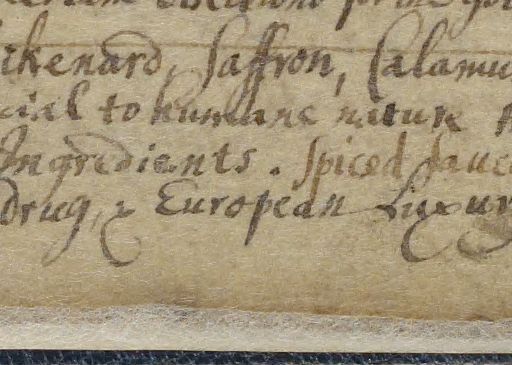 for the
ikenard, saffron, Calamu
cial to humane nature
Ingredients. spiced sauce
drug, & European Luxur